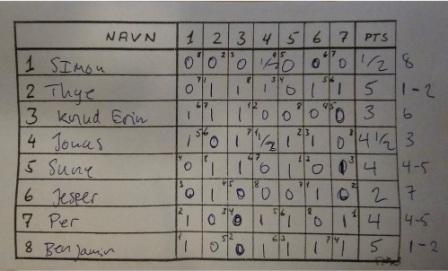 NAVN 1 2 3 4 5 6 7 PTS
1 Simon 0 0 0 1/2 0 0 0 1/2 8
2 Thye 0 1 1 1 0 1 1 5 1-2
3 Knud Erin 1 1 1 0 0 0 0 3 6
4 Jonas 1 0 1 1/2 1 1 0 4 1/2 3
5 Sune 0 1 1 0 1 0 1 4 4-5
6 Jesper 0 1 0 0 0 1 0 2 7
7 Per 1 0 0 1 1 0 1 4 4-5
8 Benjamin 1 0 0 1 1 1 1 5 1-2